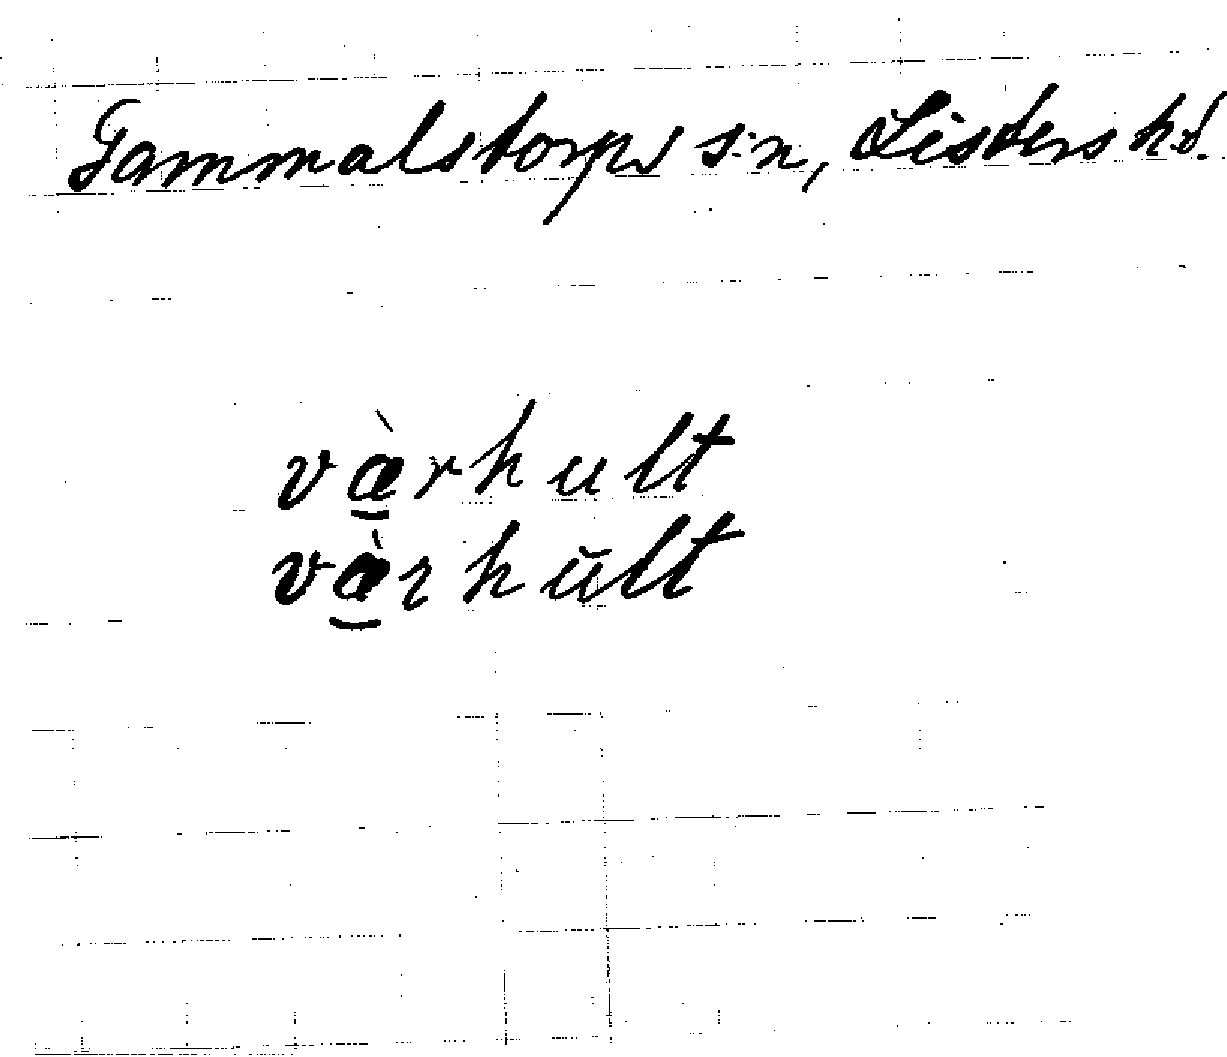 Gammalstorps s:n, Listers hd.
væ̱̀rhult
væ̱̀rhŭlt